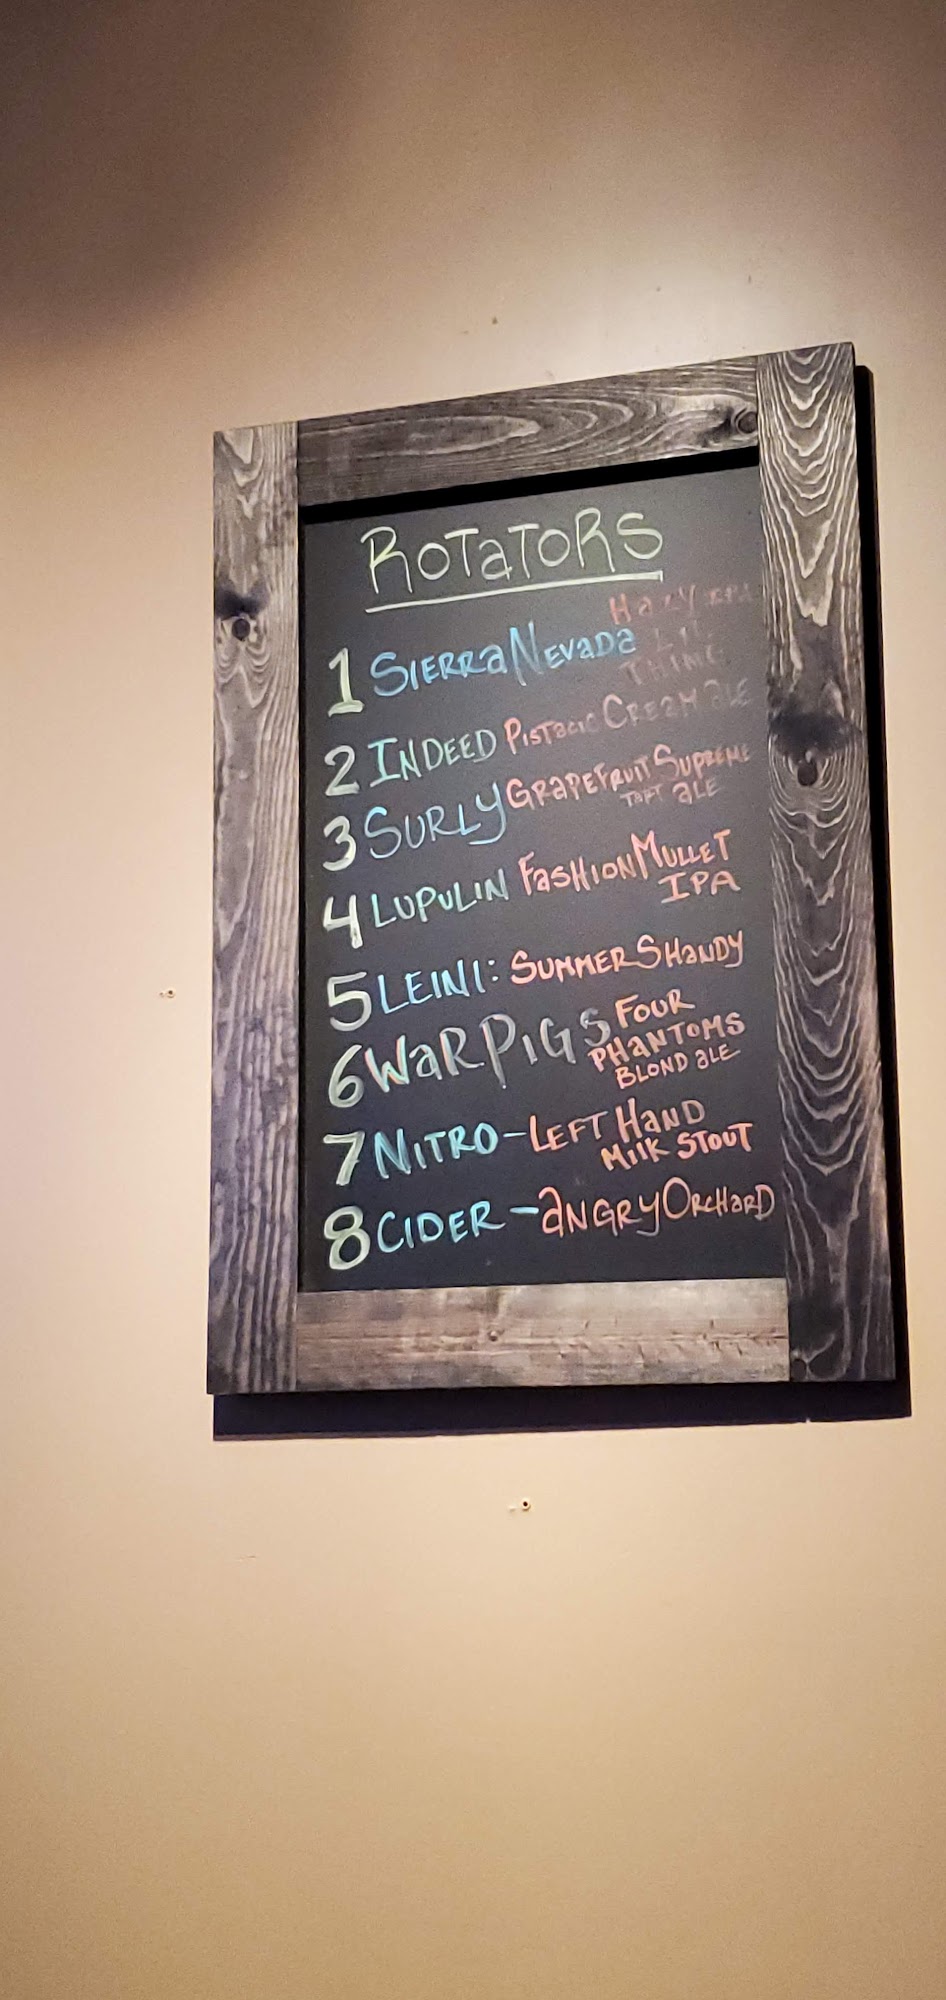 ROTATORS
1 SIERRA NEVADA HAZY IPA
LIL
THING
2 INDEED PISTACIO CREAM ALE
3 SURLY GRAPEFRUIT SUPREME
TART ALE
4 LUPULIN FASHION MULLET
IPA
5 LEINI: SUMMER SHANDY
6 WARPIGS FOUR
PHANTOMS
BLOND ALE
7 NITRO-LEFT HAND
MILK STOUT
8 CIDER-ANGRY ORCHARD